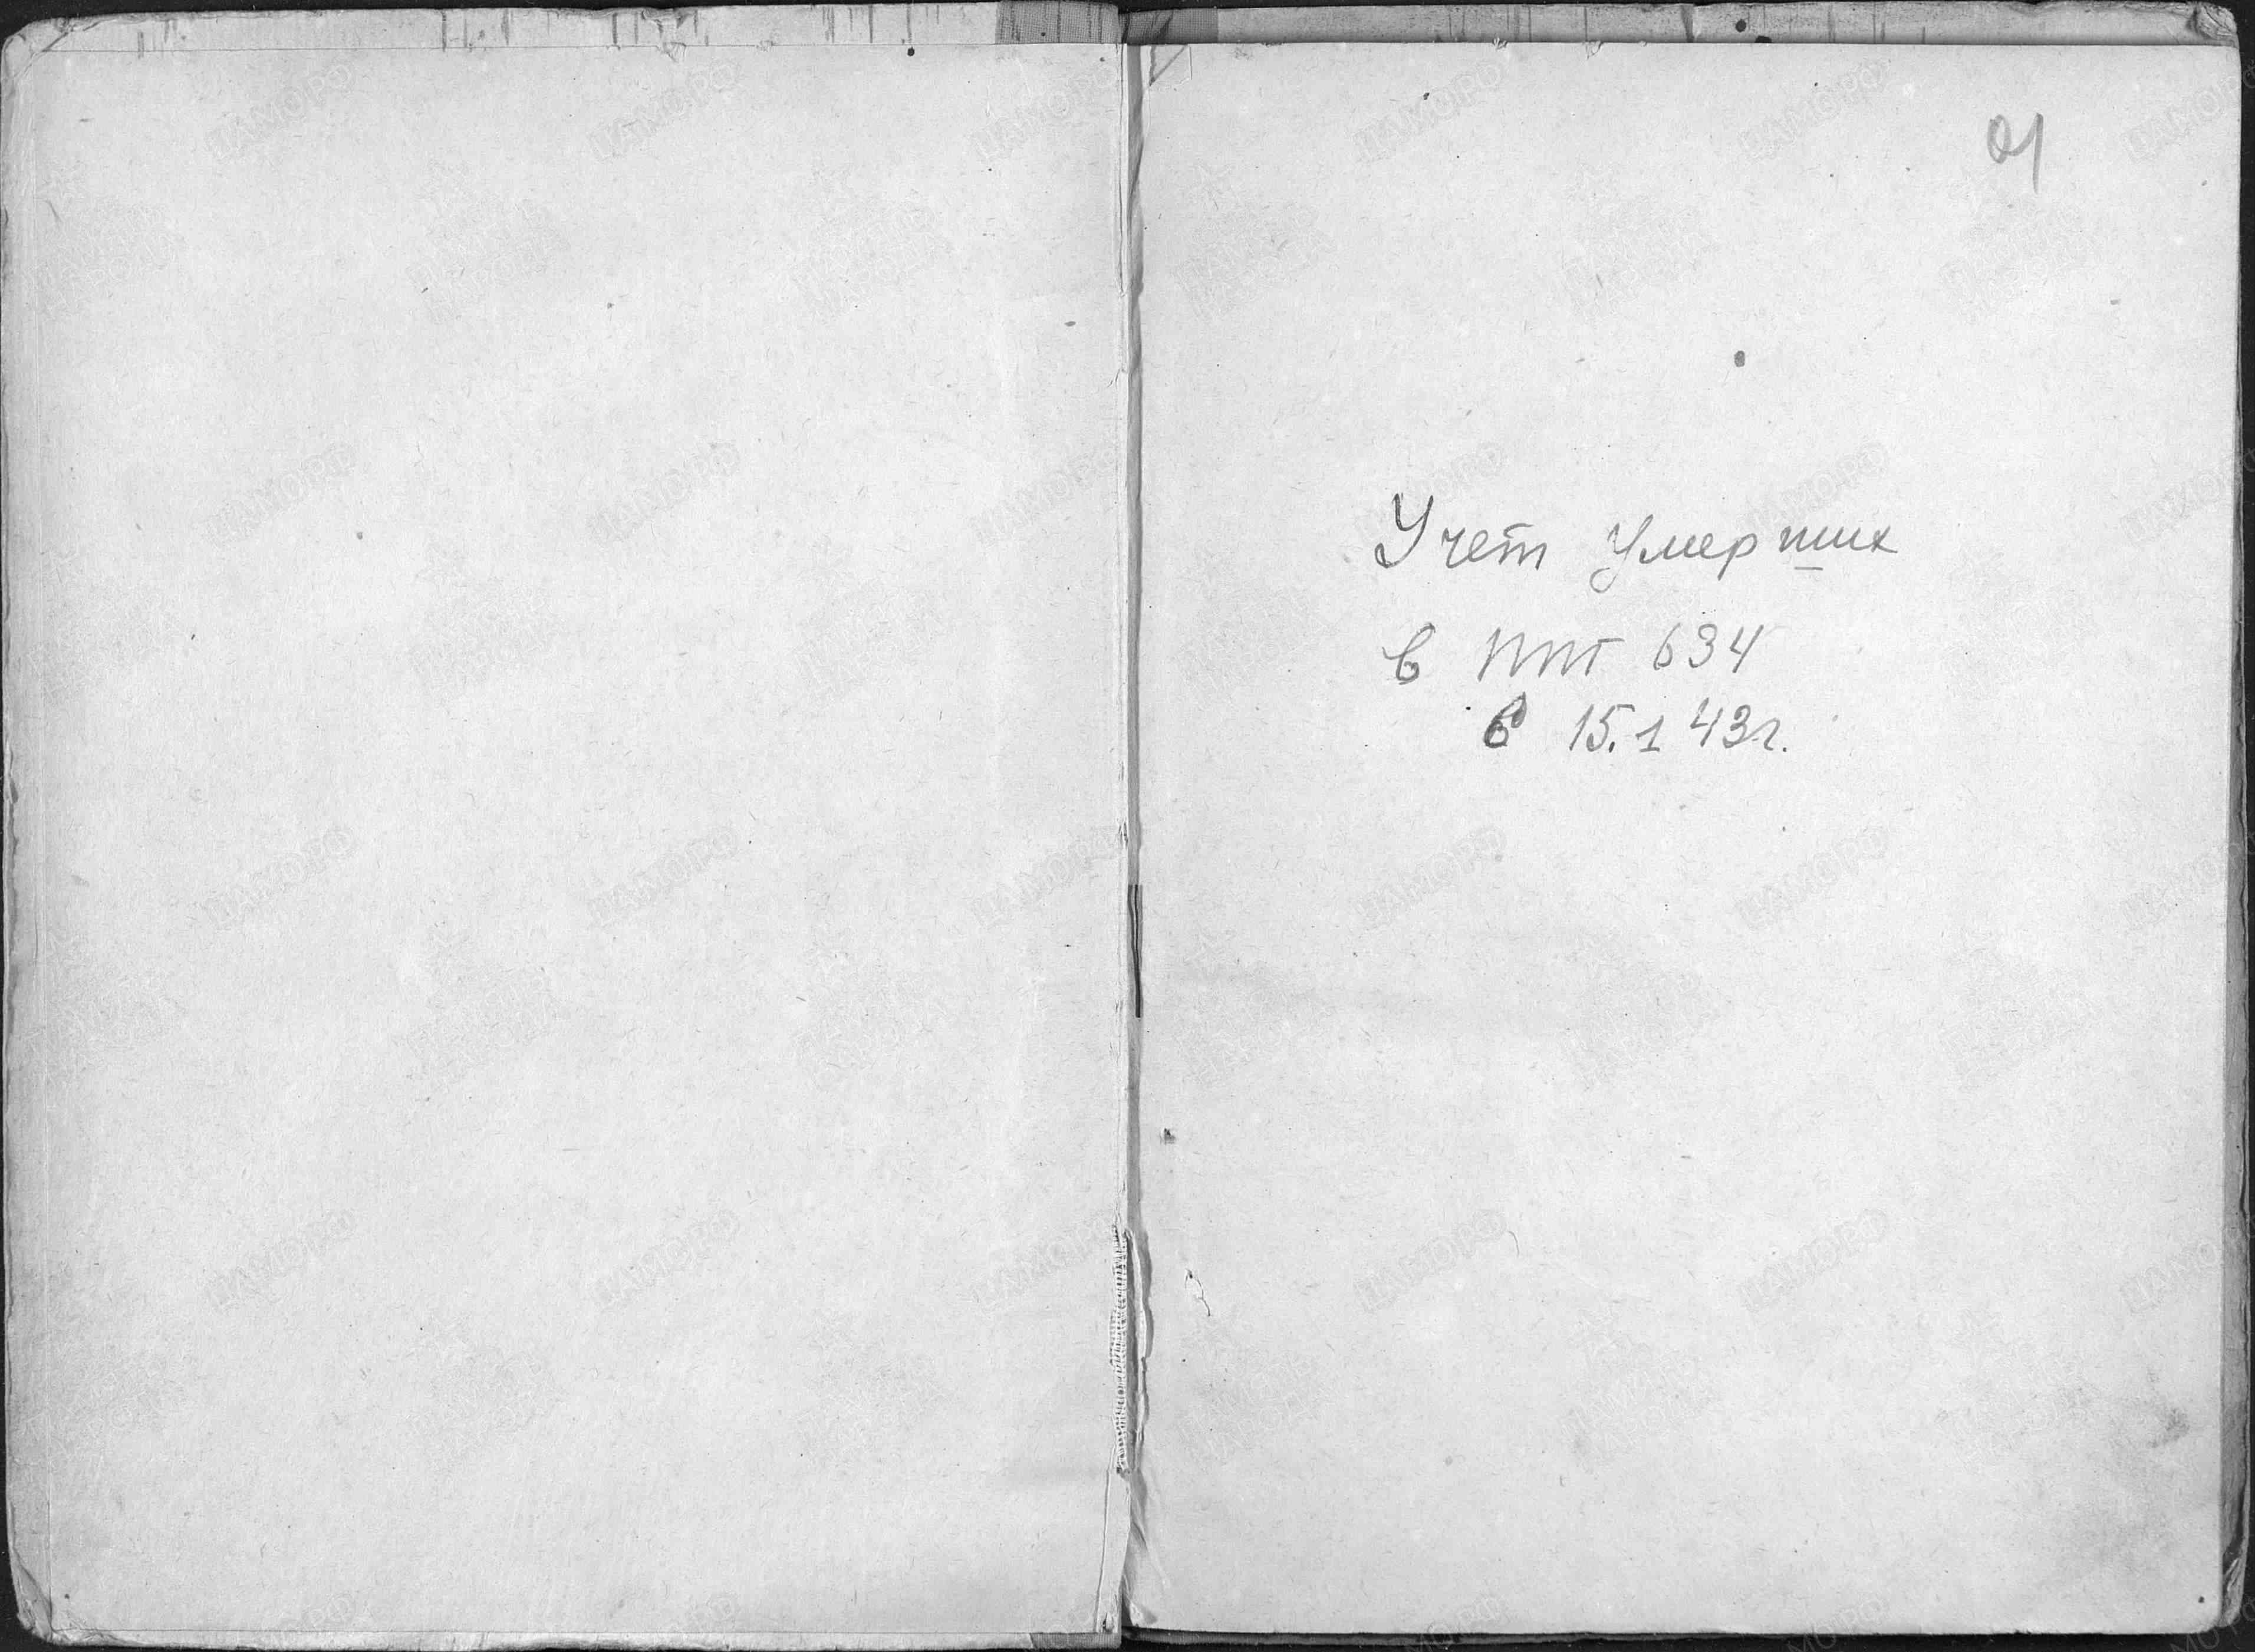 01
Учет умерших
в ППГ 634
с 15.1 43г.